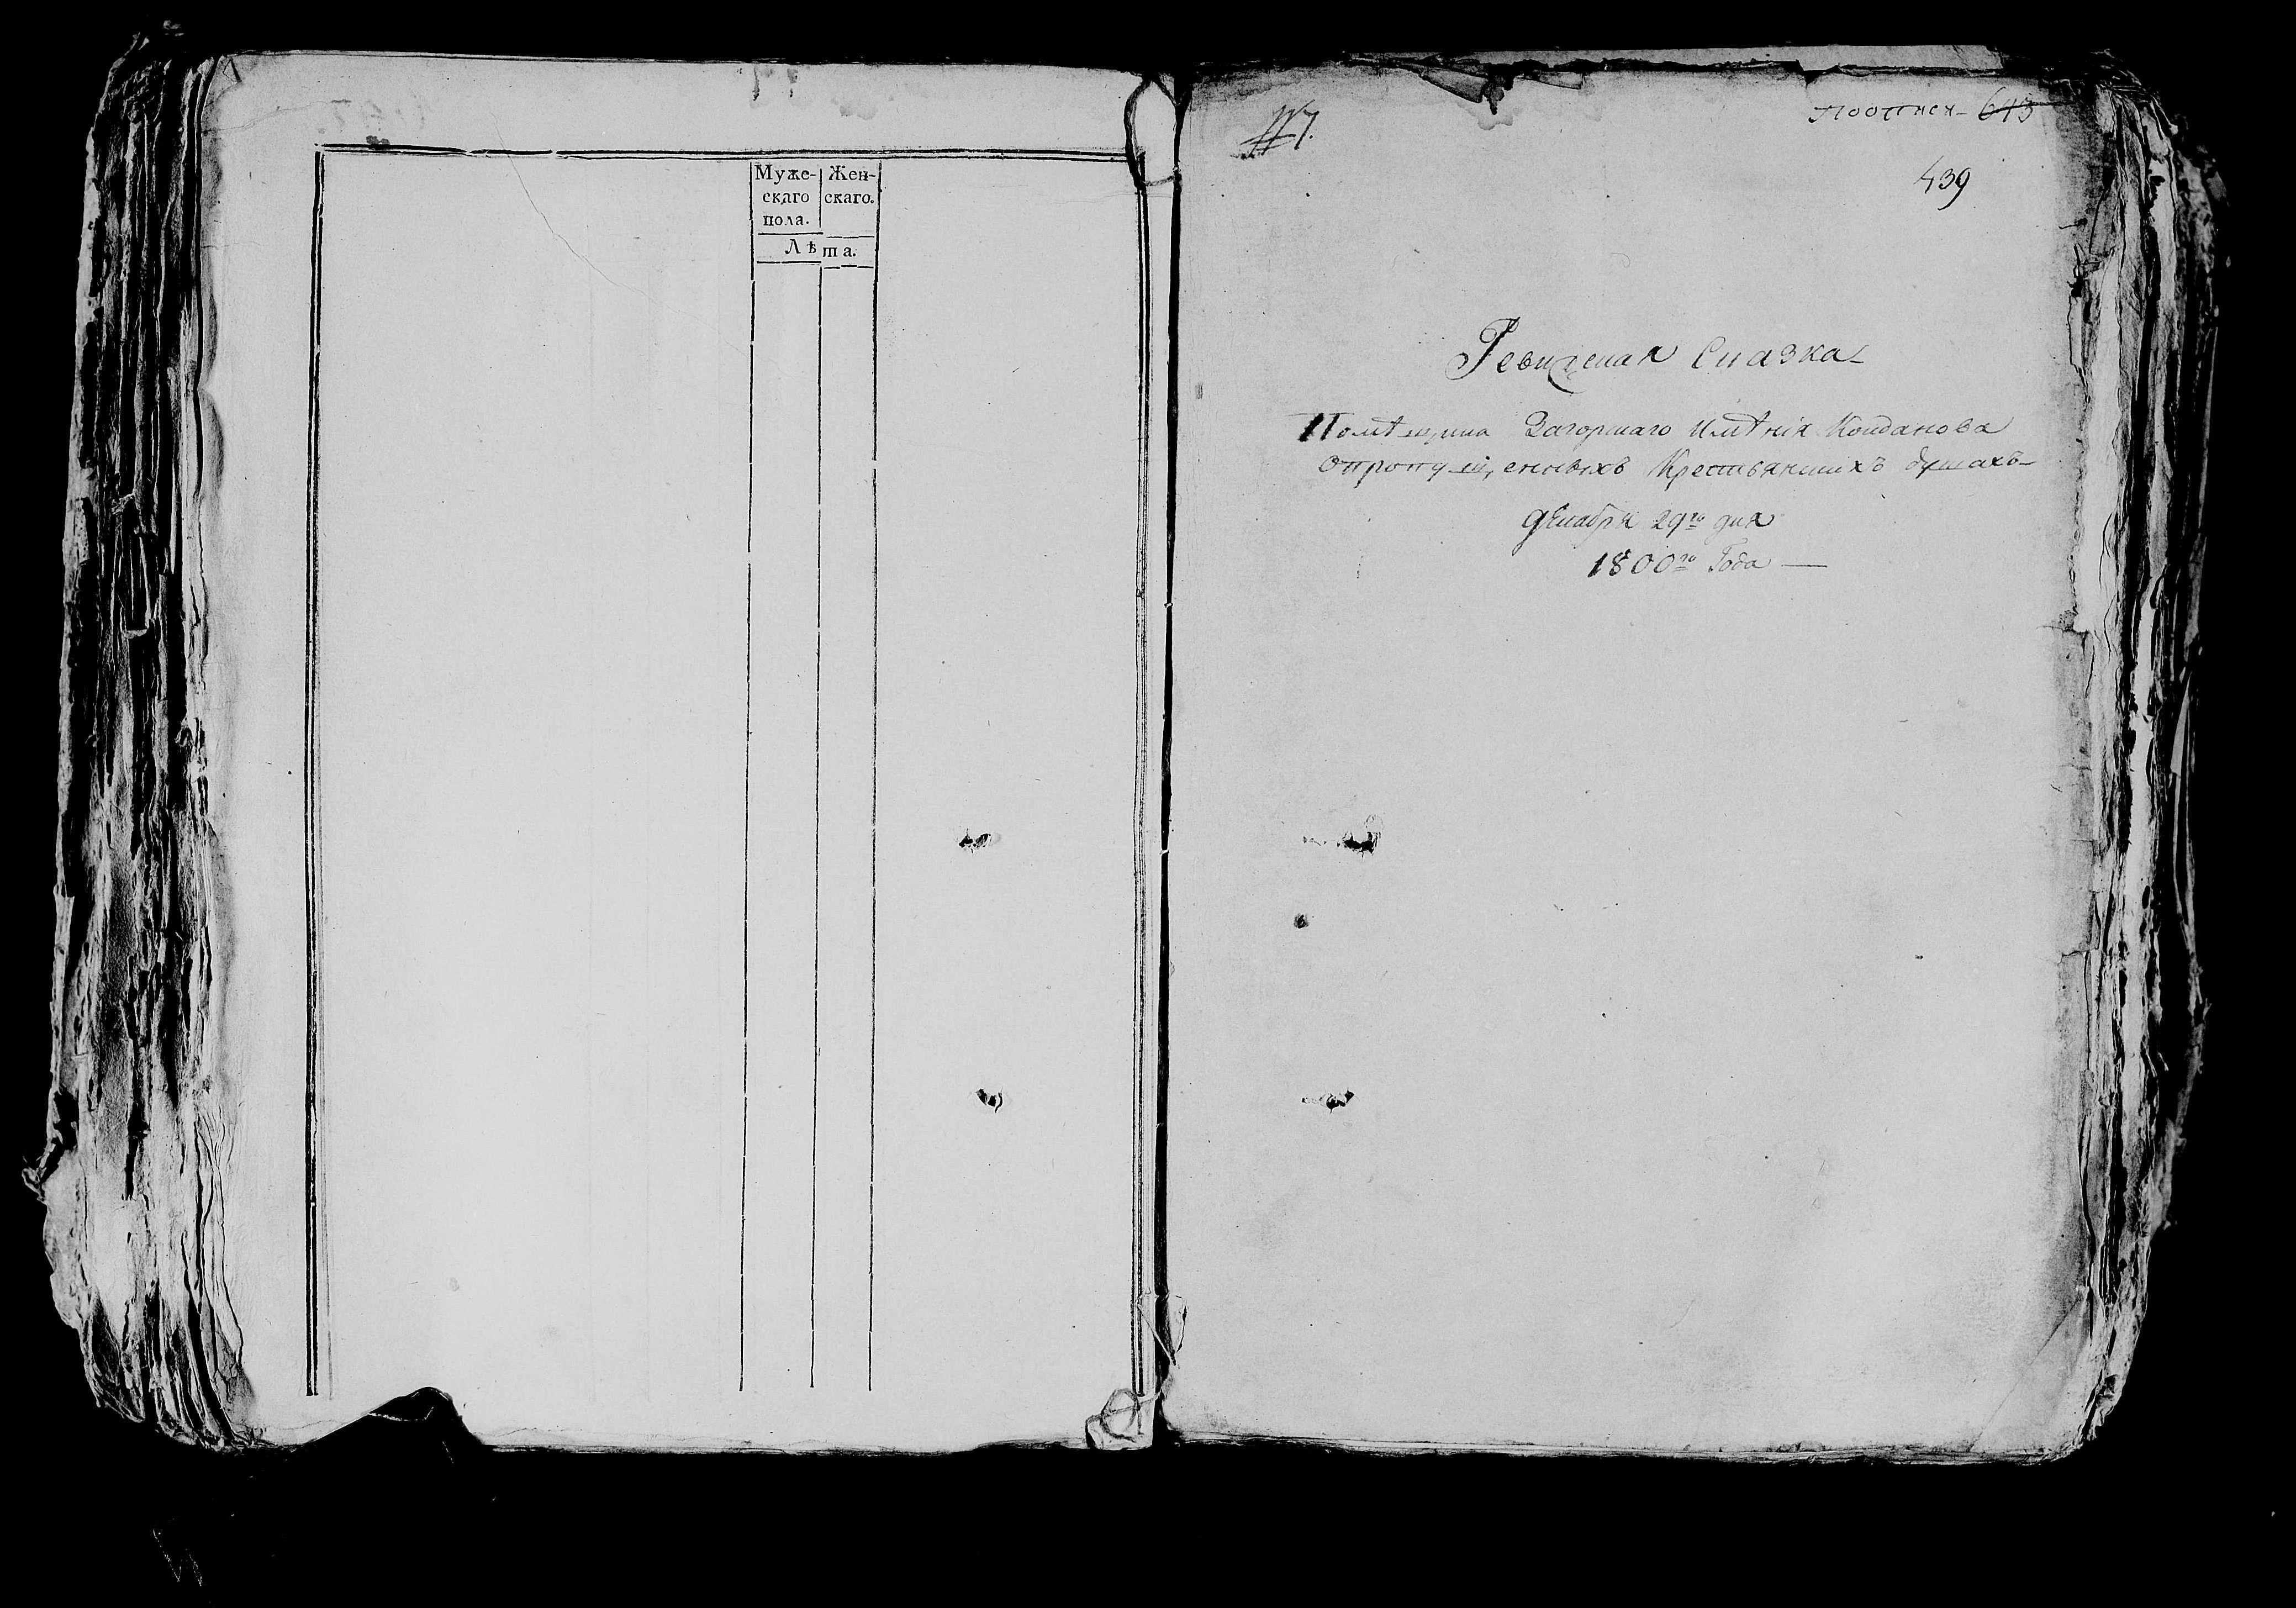 Муже-
скаго
пола.
Жен-
скаго.
Лѣта.
№7.
поописи 643
439
Ревиская Сказка
Помѣщика Загорскаго Имѣнія Койданова
опропущенныхъ Крестьянскихъ душахъ
Декабря 29го дня
1800го Года